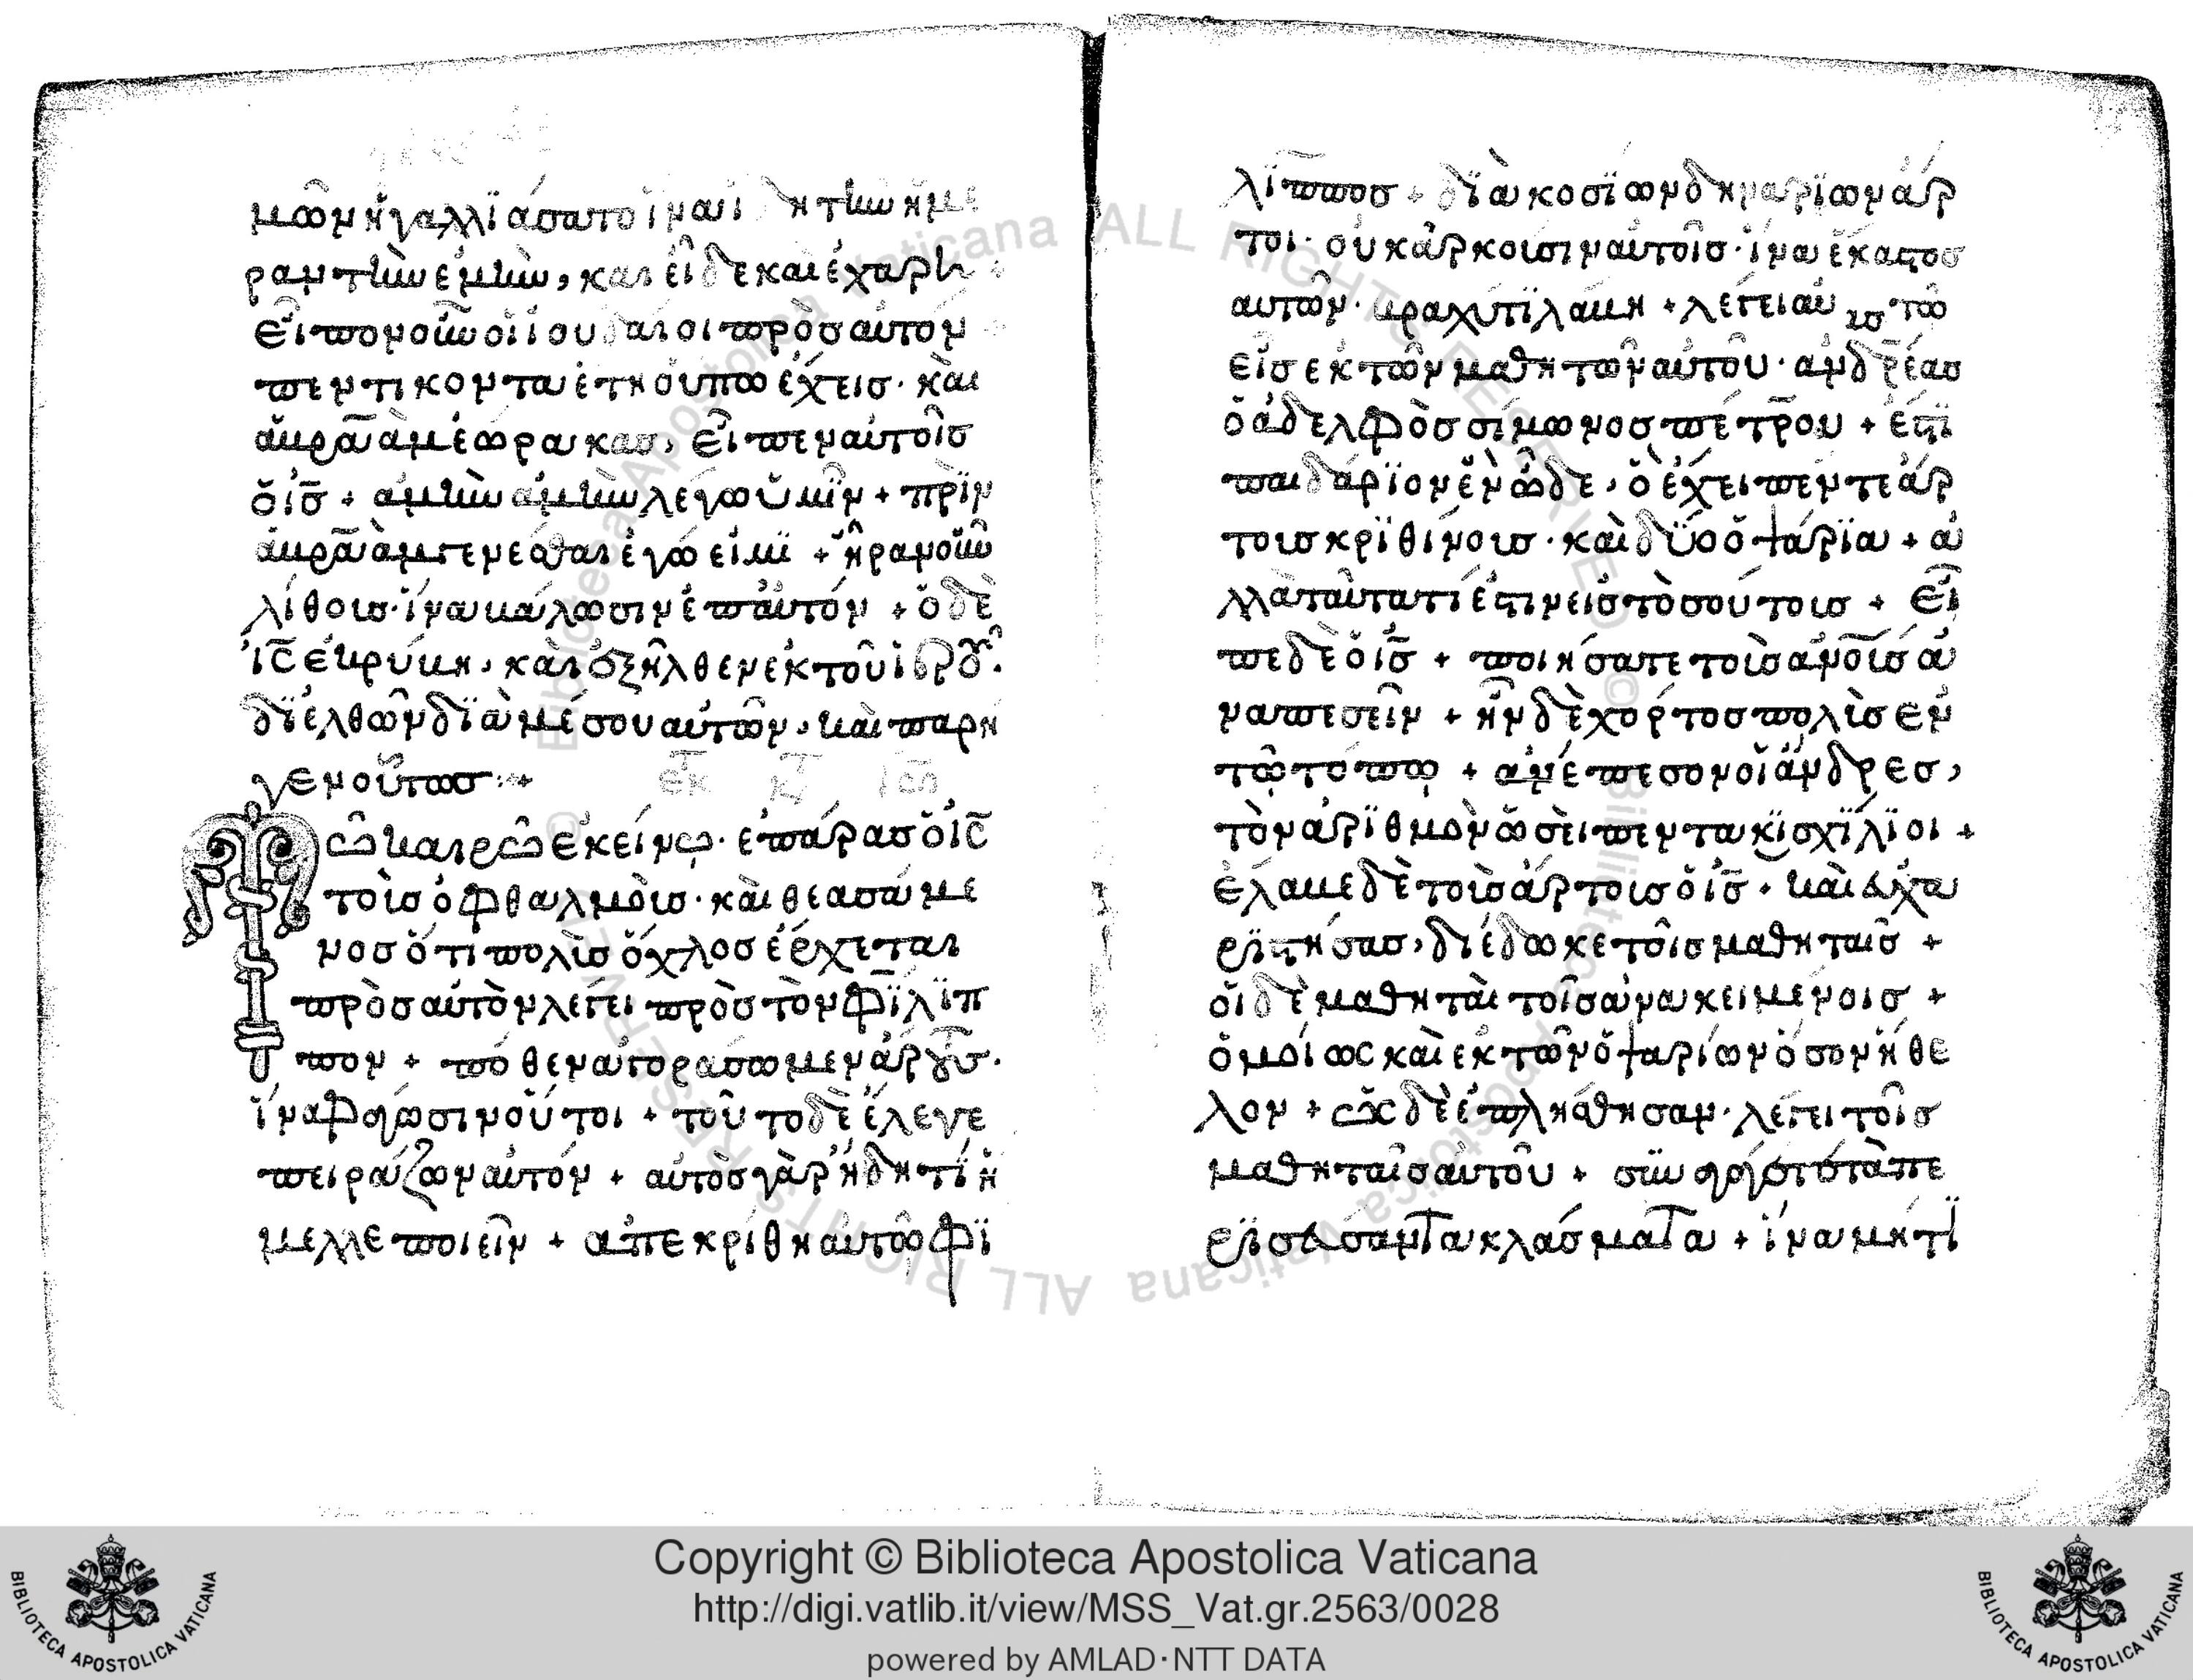 μῶν ἠγαλλϊάσατο ἵνα ἴδη τὴν ἡμέ
ραν τὴν ἐμὴν, καὶ εἶδε καὶ ἐχάρη
Εἶπον οὖν οἱ ἰουδαῖοι πρὸς αὐτον
πεντικοντα ἔτη οὔπω ἔχεις· καὶ
ἀβραὰμ ἑώρακας, Εἶπεν αὐτοῖς
ὁ ις̅ + ἀμὴν ἀμὴν λέγω ὑμῖν + πρὶν
ἀβραὰμ γενέσθαι ἐγώ εἰμϊ + ἦραν οὖν
λίθοις· ἵνα βάλωσιν ἐπ αὐτόν + ὁ δὲ
ις̅ ἐκρύβη, καὶ ἐξῆλθεν ἐκ τοῦ ἱερου·
διελθὼν διὰ μέσου αὐτῶν, καὶ παρῆ
γεν οὕτως :+
Τῶ καιρῶ ἐκείνω· ἐπάρας ὁ ις̅
τοὶς ὀφθαλμοὶς· καὶ θεασάμε
νος ὅτι πολὶς ὄχλος ἔρχεται
πρὸς αὐτὸν λέγει πρὸς τὸν φϊλϊπ
πον + πόθεν ἀγοράσωμεν ἄρτους·
ἵνα φάγωσιν οὗτοι + τοῦτο δὲ ἔλεγε
πειράζων αὐτόν + αὐτὸς γὰρ ἤδη τί ἤ
μελλε ποιεῖν + ἀπεκρίθη αὐτῶ φϊ
λϊππος + δϊακοσϊων δηναρϊων ἄρ
τοι· οὐκ ἀρκοῦσιν αὐτοῖς· ἵνα ἕκαστος
αὐτῶν· βραχύ τϊ λάβη + λέγει αὐτῶ
εἷς ἐκ τῶν μαθητῶν αὐτοῦ· ἀνδρέας
ὁ ἀδελφὸς σίμωνος πέτρου + ἔστϊ
παιδάρϊον ἓν ὧδε, ὃ ἔχει πέντε ἄρ
τους κρϊθίνους· καὶ δϋο ὀψάρϊα + ἀ
λλὰ ταῦτα τί ἐστιν εἰς τοσούτοις + Εἶ
πε δὲ ὁ ις̅ + ποιήσατε τοὶς ἀνοὶς ἀ
ναπεσεῖν + ἦν δὲ χόρτος πολὶς ἐν
τῶ τόπω + ἀνέπεσον οἱ ἄνδρες,
τὸν ἀρϊθμὸν ὡσεὶ πεντακϊσχϊλϊοι +
ἔλαβε δὲ τοὶς ἄρτους ὁ ις̅· καὶ εὐχα
ρϊστήσας, διέδωκε τοῖς μαθηταῖς +
οἱ δὲ μαθηταὶ τοῖς ἀνακειμένοις +
ὁμοίως καὶ ἐκ τῶν ὀψαρίων ὅσον ἤθε
λον + ὡς δὲ ἐπλήσθησαν· λέγει τοῖς
μαθηταῖς αὐτοῦ + συναγάγετε τὰ πε
ρϊσσεύσαντα κλάσματα + ἵνα μή τϊ
Copyright © Biblioteca Apostolica Vaticana
http://digi.vatlib.it/view/MSS_Vat.gr.2563/0028
powered by AMLAD·NTT DATA
BIBLIOTECA APOSTOLICA VATICANA
BIBLIOTECA APOSTOLICA VATICANA